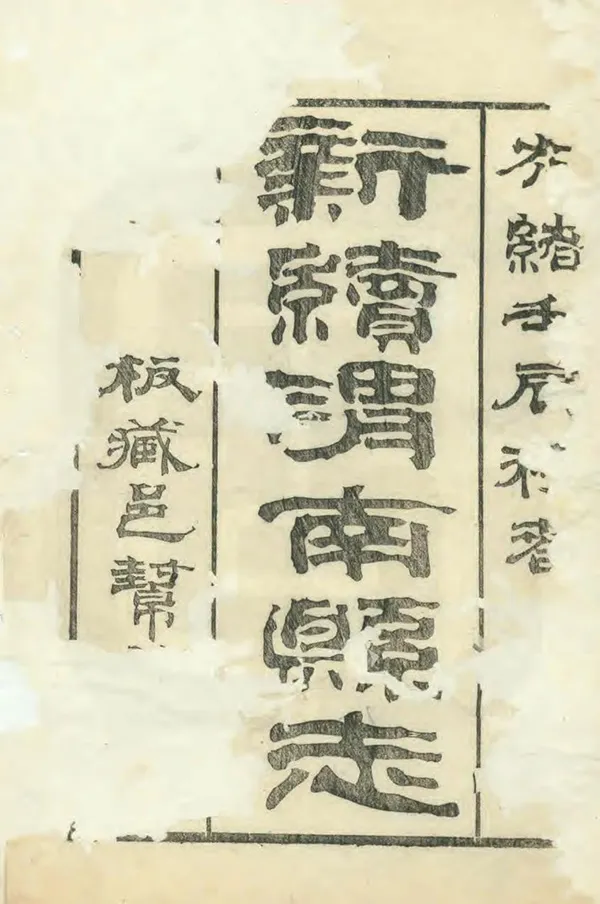 光緒壬辰
新續渭南縣志
板藏邑幫